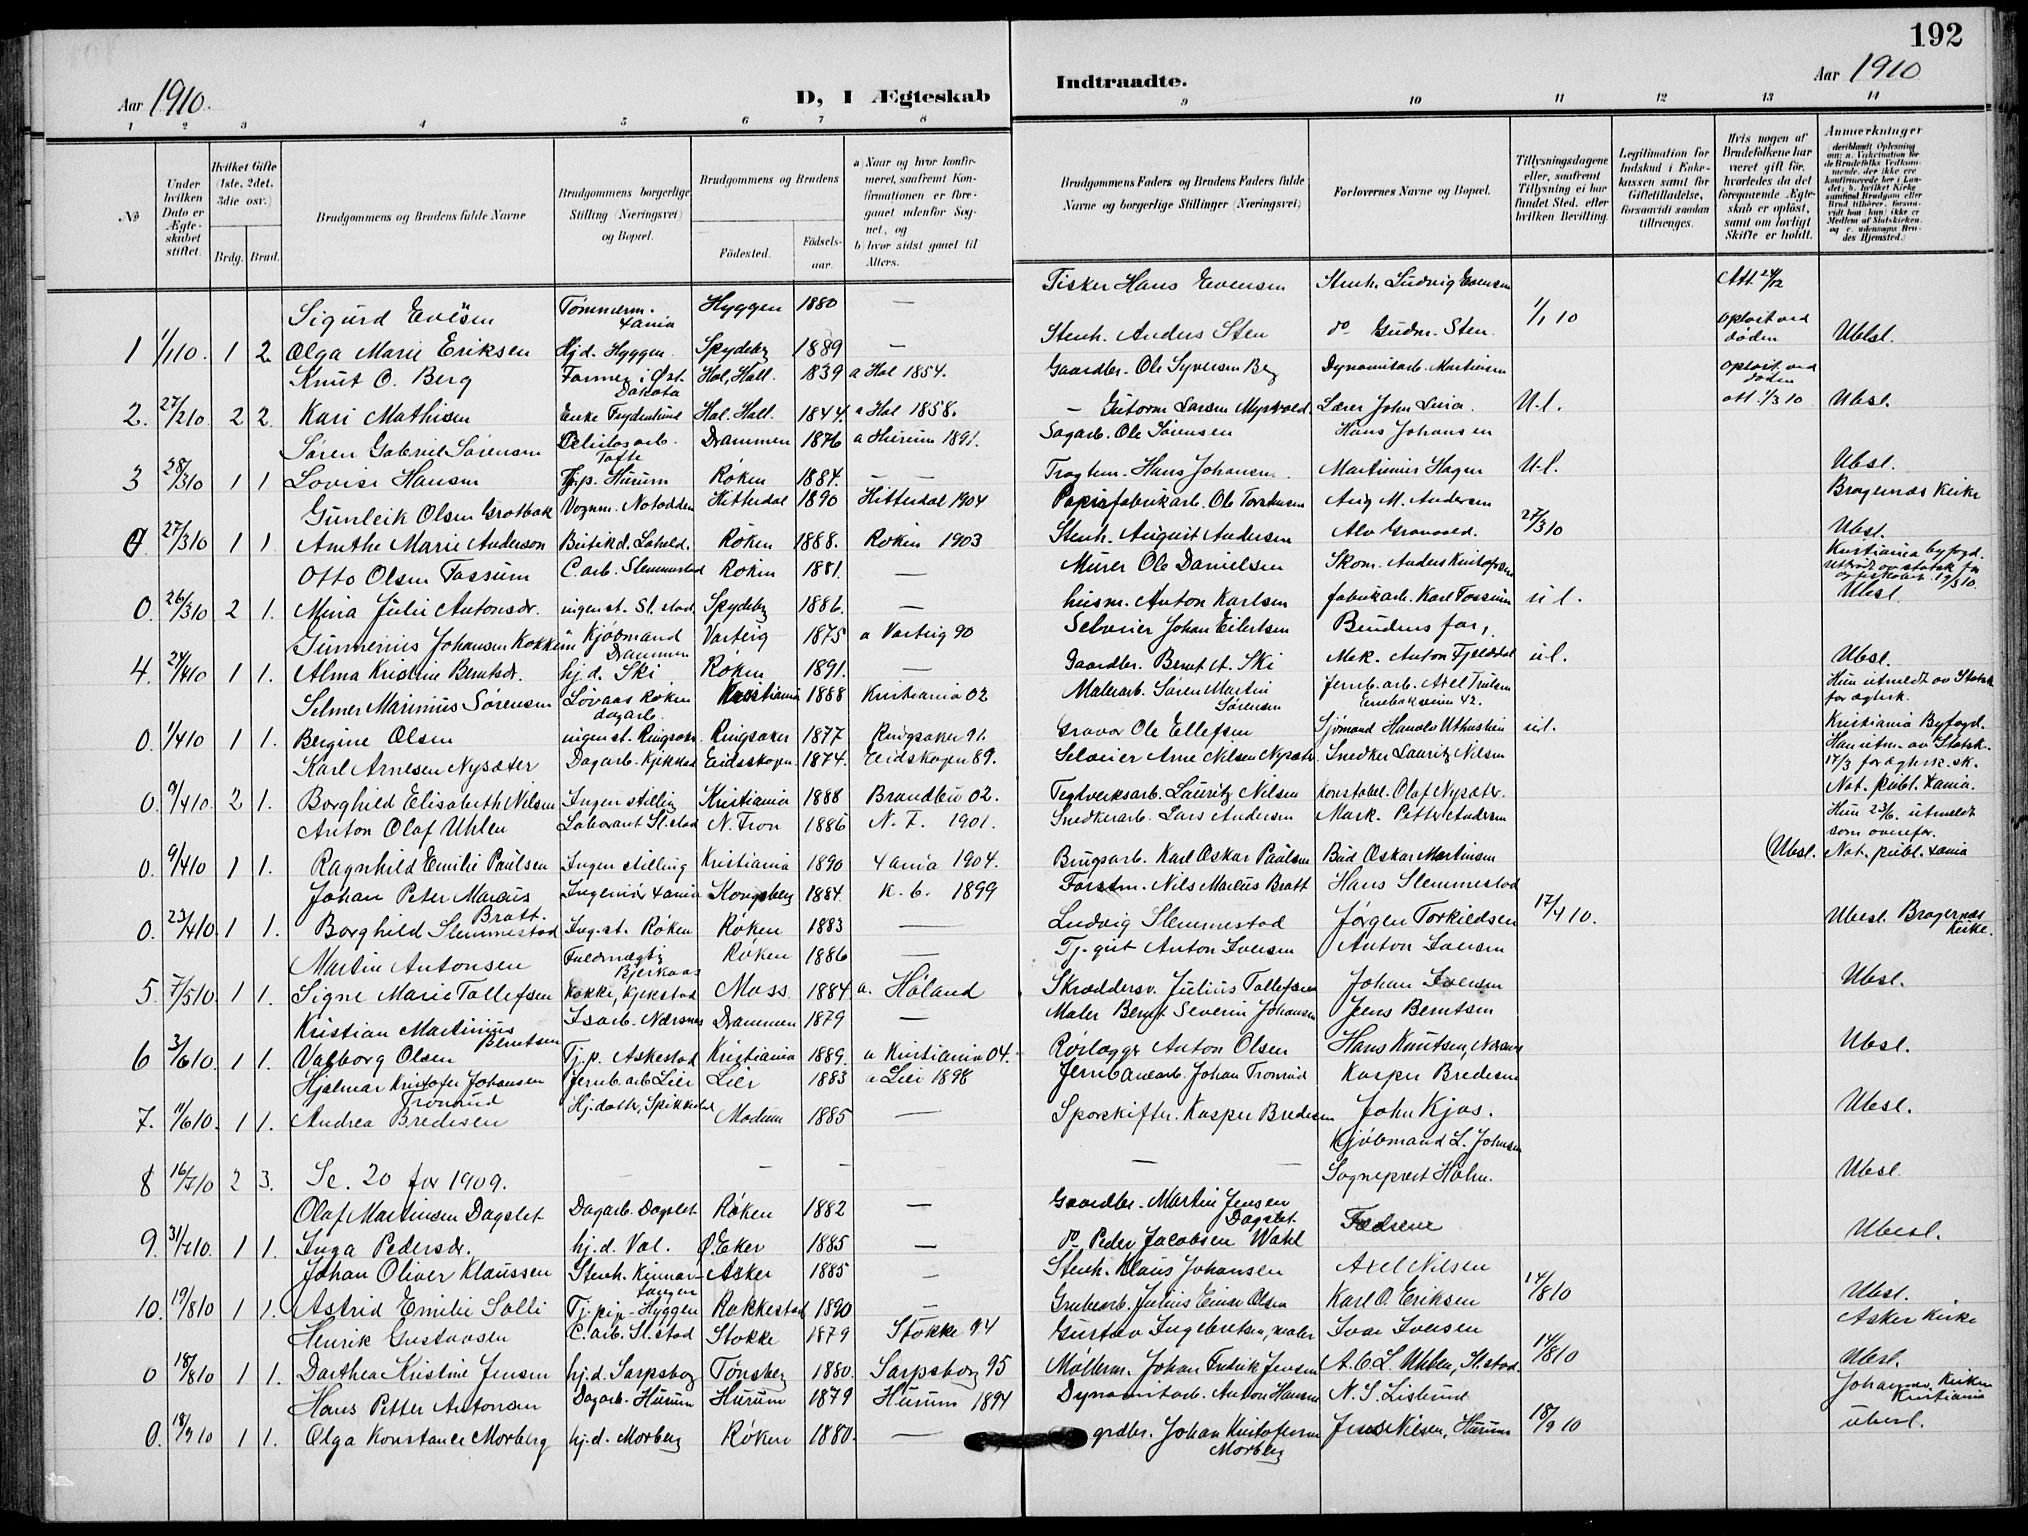 192
Aar 1910.
D, I Ægteskab
Indtraadte.
Aar 1910
1 2 3 4 5 6 7 8 9 10 11 12 13 14
No
Under hvilken Dato er Ægteskabet stiftet.
Hvilket Gifte (1ste, 2det, 3die osv.)
Brdg. Brud.
Brudgommens og Brudens fulde Navne
Brudgommens borgerlige Stilling (Næringsvei) og Bopæl.
Brudgommens og Brudens
Fødested.
Fødselsaar.
a) Naar og hvor konfirmeret, saafremt Konfirmationen er foregaaet udenfor Sognet, og
b) hvor sidst gaaet til Alters.
Brudgommens Faders og Brudens Faders fulde Navne og borgerlige Stillinger (Næringsvei)
Forlovernes Navne og Bopæl.
Tillysningsdagene eller, saafremt Tillysning ei har fundet Sted, efter hvilken Bevilling.
Legitimation for Indskud i Enkekassen samt for Giftetilladelse, forsaavidt saadan tiltrænges.
Hvis nogen af Brudefolkene har været gift før, hvorledes da det foregaaende Ægteskab er opløst, samt om lovligt Skifte er holdt.
Anmærkninger
Sigurd Evesen Tömmerm. Xania Hyggen 1880 — Tisker Hans Evensen Stenh. Ludvig Evensen Att 24/12
1 1/1 10. 1 2 Olga Marie Eriksen Hj.d. Hyggen Spydeb. 1889 — Stenh. Anders Sten do Gudm. Sten. 1/1 10 Opløst ved døden Ubsl.
Knut O. Berg Farmer i Øst. Dakota Hol, Hall. 1839 a Hol 1854. Gaardbr. Ole Syversen Berg Dynamitarb. Martinsen opløst ved døden
2. 27/2 10 2 2 Kari Mathisen Enke Frydenlund Hol. Hall. 1844. a Hol 1858. - Gutorm Larsen Myrvold. Lærer John Luia. U.l. att. 1/3 10 Ubsl.
Søren Gabriel Sørensen Celulosarb. Tofte Drammen 1876 a Hurum 1891. Sagarb. Ole Sørensen Hans Johansen
3 28/3 10 1 1 Lovise Hansen Tj.p. Hurum Røken 1884. — Tragtem. Hans Johansen Martinius Hagen U.l. Ubsl.
Gunleik Olsen Grotbæk Vognm. Notodden Hitterdal 1890 Hitterdal 1904 Papirfabrikarb. Ole Torstensen Aug M. Andersen Bragernæs Kirke
0 27/3 10 1 1 Anethe Marie Anderson Butikd. Røken 1888. Røken 1903 Stenh. August Andersen Alv Granvold. 27/3 10 Ubsl.
Otto Olsen Fossum C. arb. Slemmestad Røken 1881. — Murer Ole Danielsen Skom. Anders Kristofersen Kristiania byfogd.
0 26/3 10 2 1. Mina Julie Antonsdr. ingen st. Sl.stad Spydeb. 1886. — husm. Anton Karlsen fabrikarb. Karl Fossum u l. Ubsl.
Gunnerius Johansen Kokkin Kjöbmand Drammen Varteig 1875 a Varteig 90 Selveier Johan Eilertsen Brudens far,
4. 24/4 10 1 1. Alma Kristine Berntsdr. hj.d. Ski Røken 1891. — Gaardbr. Bernt A. Ski Mek. Anton Fjelddal u l. Ubsl.
Selmer Marinius Sørensen Løvaas Røken dagarb. Kristiania 1888 Kristiania 02 Malerarb. Søren Martin Sørensen Jernb.arb. Axel Trulsen 42. Hun utmeldt av Statsk. for ægtesk.
0. 1/4 10 1 1. Bergine Olsen ingen st. Ringsak. Ringsaker 1877 Ringsaker 91. Graver Ole Ellefsen Sjömand Harald Uthustin u l. Kristiania Byfogd.
Karl Arnesen Nysæter Dagarb. Kjekstad Eidsskogen. 1874. Eidskogen 89. Selveier Arne Nilsen Nysæter Snedker Lauritz Nilsen Han utm. av Statsk. 17/3 for ægtesk. sk.
0. 9/4 10. 2 1. Borghild Elisabeth Nilsen Ingen stilling Kristiania 1888 Brandbu 02. Teglverksarb. Lauritz Nilsen Konstabel. Olaf Nysæter. Not. publ. Xania.
Anton Olaf Uhlen Laborant Sl.stad N. Fron 1886 N. F. 1901. Snedkerarb. Lars Andersen Mask. Petter Andersen Hun 23/6. utmeldt som ovenfor.
0. 9/4 10 1 1. Ragnhild Emilie Paulsen Ingen stilling Kristiania 1890 Xania 1904. Brugsarb. Karl Oskar Paulsen Bud Oskar Martinsen (Ubsl. Not. publ. Xania
Johan Peter Marcus Bratt. Ingeniør Xania Kongsberg 1884. K.b. 1899 Forstm. Nils Marcus Bratt Hans Slemmestad
0. 23/4 10. 1 1. Borghild Slemmestad Ing. st. Røken Røken 1883 — Ludvig Slemmestad Jørgen Torkildsen 17/4 10. Ubesl. Bragernæs Kirke.
Martin Antonsen Fuldmægtig Bjerkaas Røken 1886 — Tj. gut Anton Iversen Anton Iversen
5. 7/5 10. 1 1. Signe Marie Tollefsen Kokke, Kjekstad Moss 1884 a. Høland Skræddersv. Julius Tollefsen Johan Iversen Ubsl.
Kristian Martinius Berntsen Isarb. Nærsnes Drammen 1879 — Maler Bernt Severin Johansen Jens Berntsen
6 3/6 10. 1 1. Valborg Olsen Tj.p. Askestad Kristiania 1889. a Kristiania 04. Rørlægger Anton Olsen Hans Knutsen, Nærsnes Ubsl.
Hjalmar Kristofer Johansen Tronrud Jernb. arb Lier Lier 1883 a Lier 1898 Jernbanearb. Johan Tronrud Kasper Bredesen
7. 11/6 10. 1 1. Andrea Bredesen Hj. datter, Spikkestad Modum 1885 — Sporskifter. Kasper Bredesen John Kjos. Ubsl.
Kjöbmand L. Johnsen
8 16/7 10 2 3. Se. 20 for 1909. — — — — — Sogneprest Holm. Ubsl.
Olaf Martinsen Dagslet Dagarb. Dagslet Røken 1882 — Gaardbr. Martin Jensen Dagslet.
9. 31/7 10. 1 1. Inga Pedersdr. hj.d. Val. Ø. Eker 1885 — do Peder Jacobsen Wahl Fædrene Ubesl.
Johan Oliver Klaussen Stenh. Kinnartangen Asker 1885 — Stenh. Klaus Johansen Axel Nilsen
10. 19/8 10 1 1. Astrid Emilie Solli Tj. pip. Hyggen Rakkestad 1890 — Grubearb. Julius Einar Olsen Karl O. Eriksen 14/8 10 Ubsl.
Henrik Gustavsen C. arb. Sl.stad Stokke 1879 Stokke 94 Gustav Ingebretsen, maler Ivar Iversen Asker Kirke
0 18/8 10 1 1. Dorthea Kristine Jensen hj.d. Sarpsborg Tønsberg 1880. Sarpsborg 95 Møllerm. Johan Fredrik Jensen A. C. L. Uhlen, Sl.stad. 14/8 10 Ubsl.
Hans Petter Antonsen Dagarb. Hurum Hurum 1879 Hurum 1894 Dynamitarb. Anton Hansen N. S. Lislerud Johannes Kirken Kristiania
0. 18/9 10 1 1. Olga Konstance Morberg hj.d. Morberg Røken 1880. — grdbr. Johan Kristofersen Morberg Jens Nilsen, Hurum 18/9 10 ubesl.